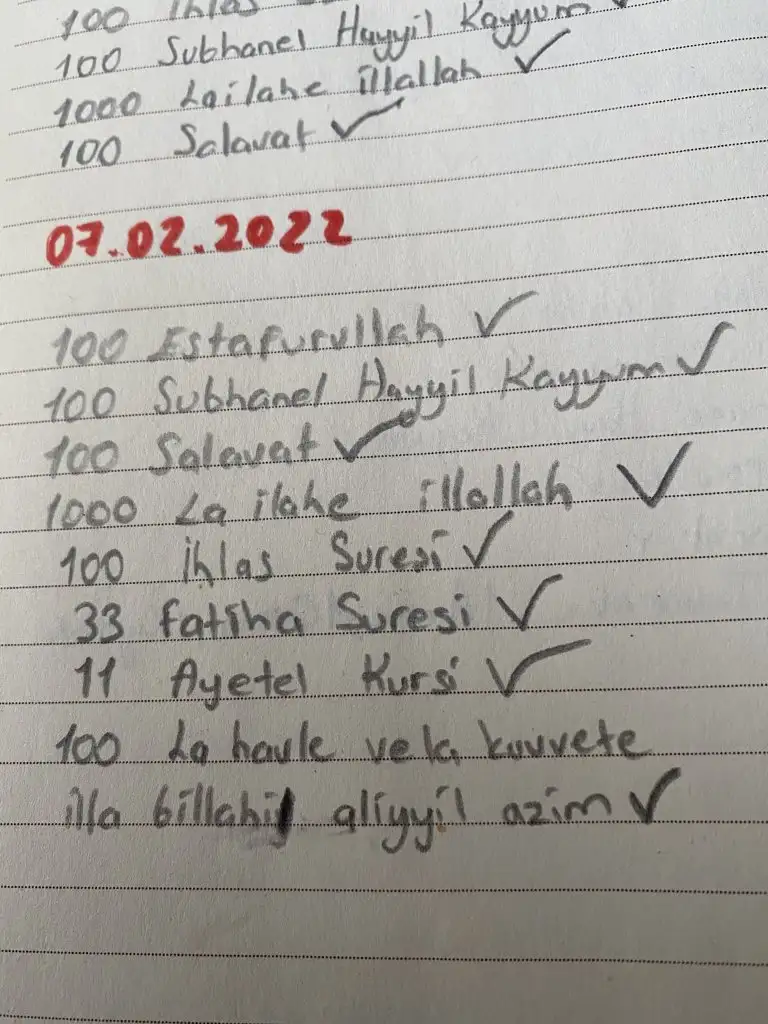 100 İhlas
100 Subhanel Hayyil Kayyum ✓
1000 Lailahe illallah ✓
100 Salavat ✓
07.02.2022
100 Estafurullah ✓
100 Subhanel Hayyil Kayyum ✓
100 Salavat ✓
1000 La ilahe illallah ✓
100 İhlas Suresi ✓
33 Fatiha Suresi ✓
11 Ayetel Kursi ✓
100 La havle vela kuvvete
illa billahil aliyyil azim ✓